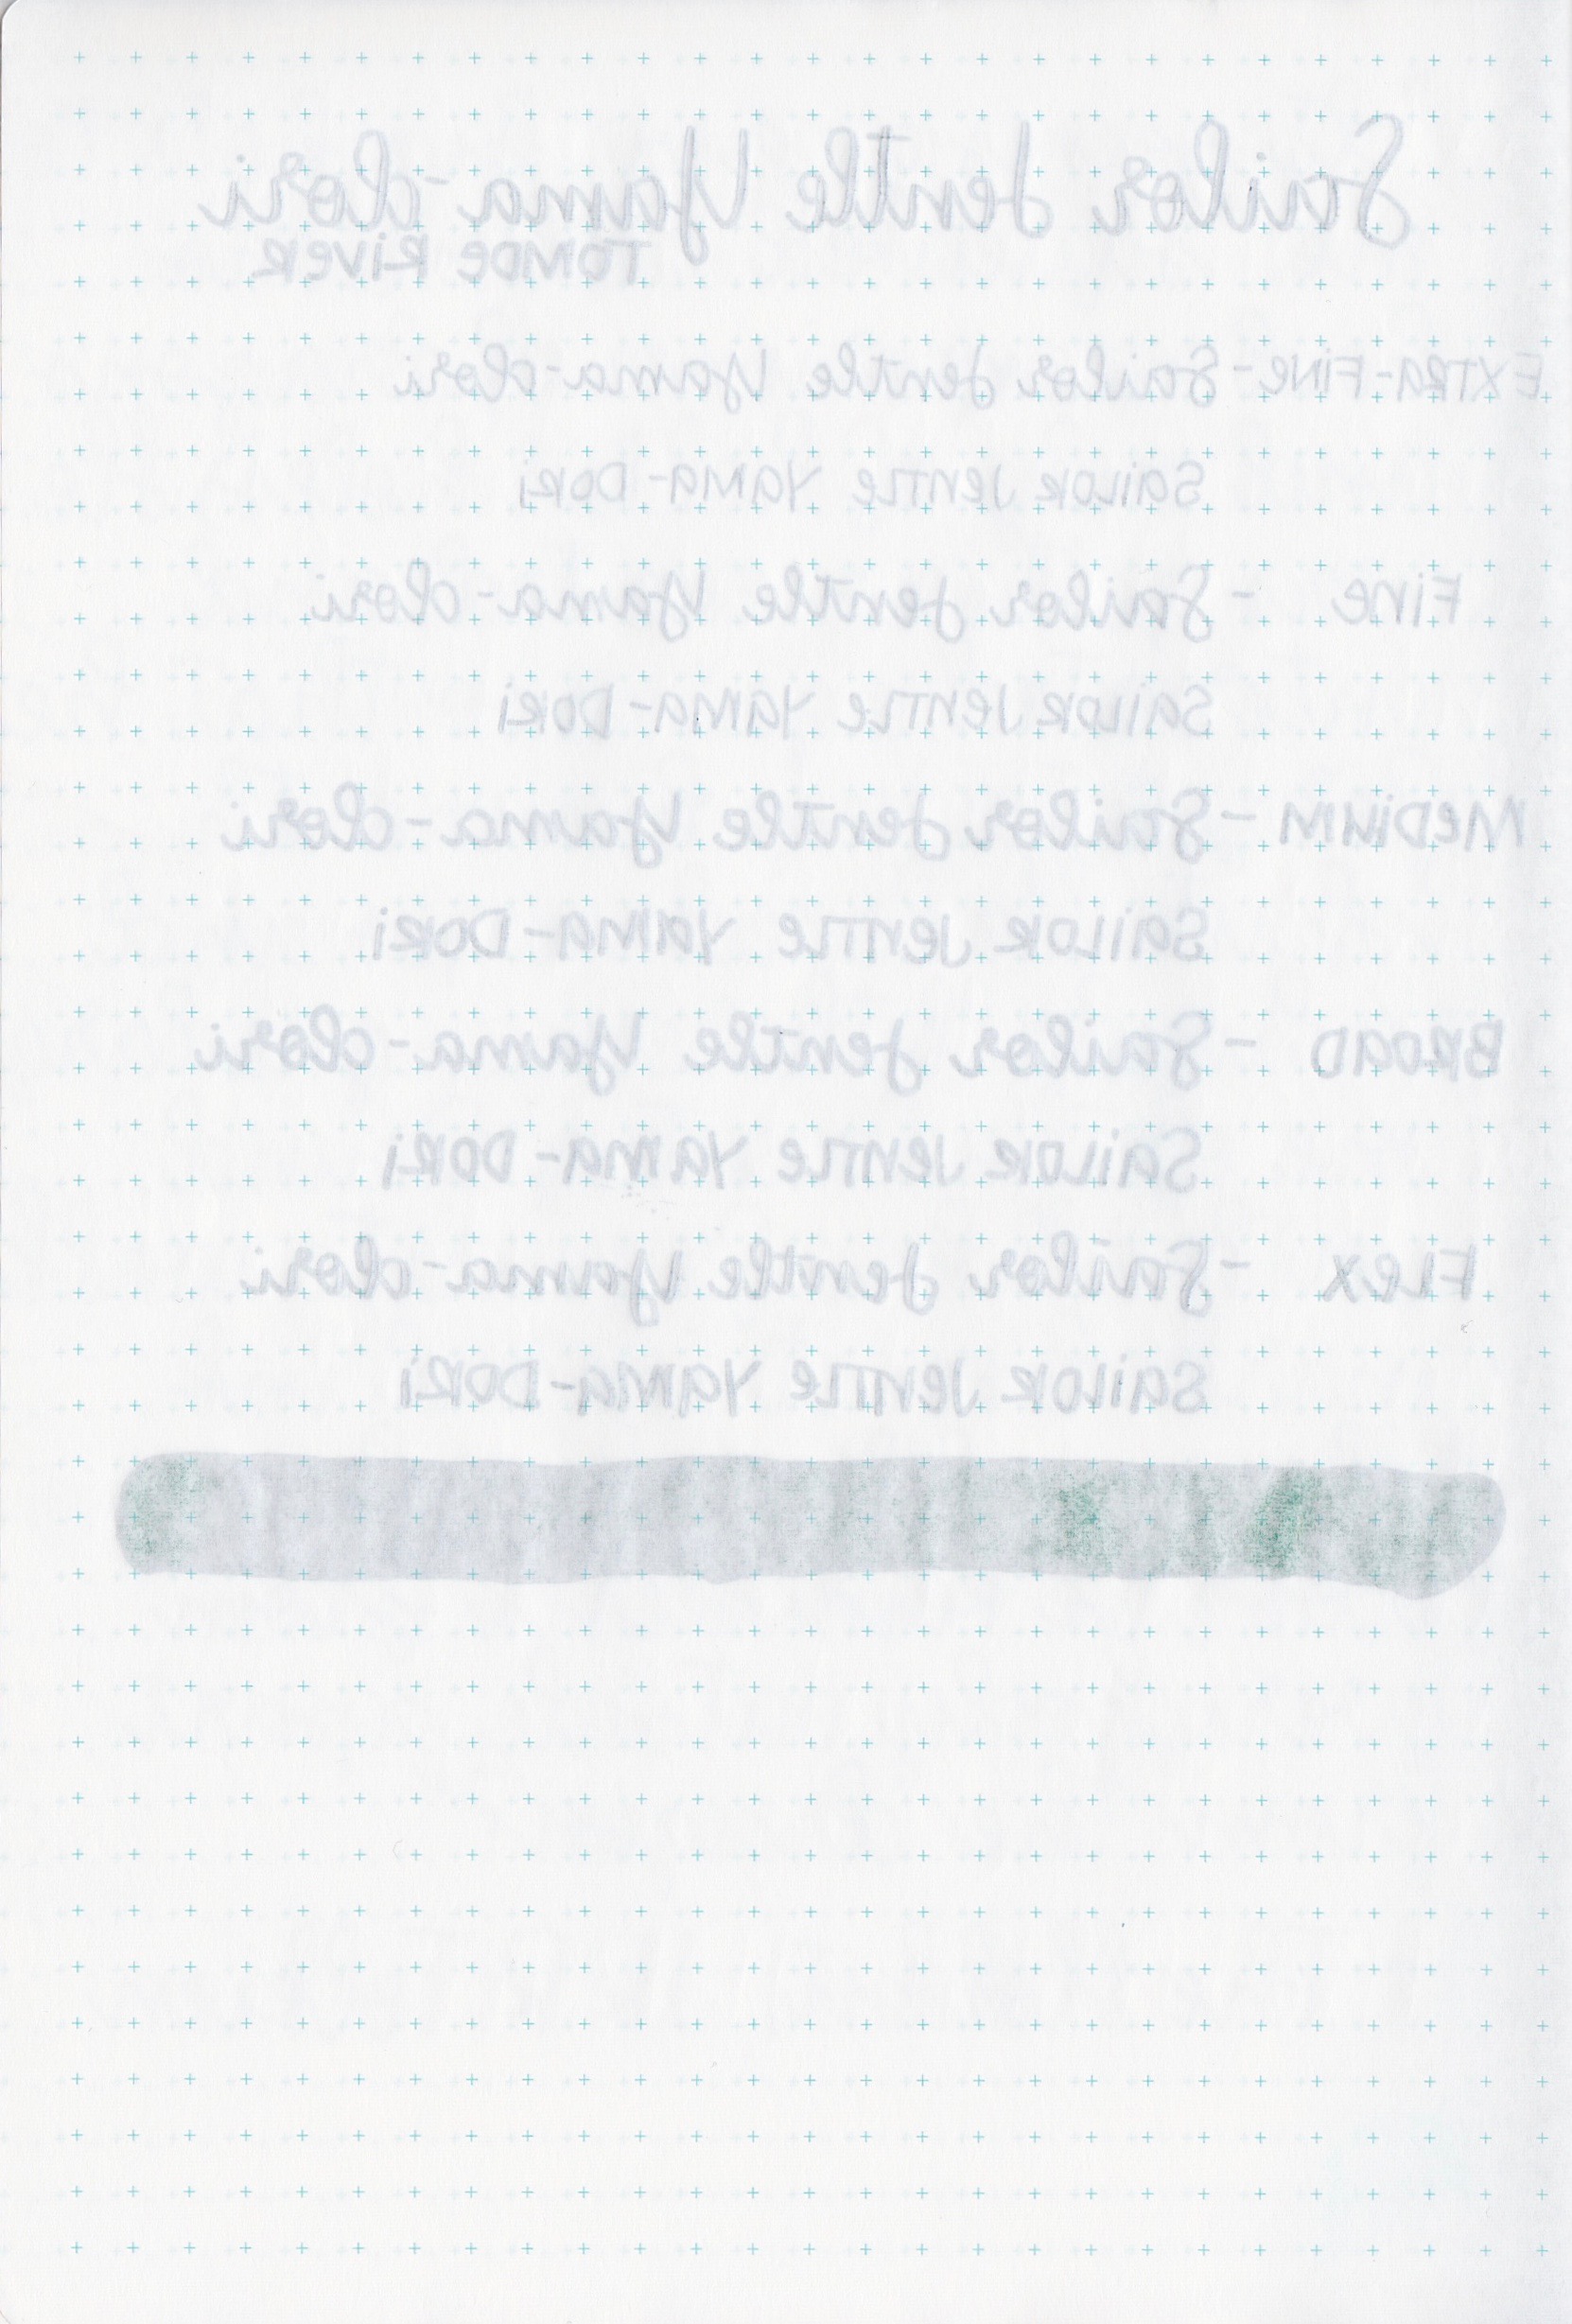 Sailor Jentle Yama-dori
TOMOE RIVER
EXTRA-FINE - Sailor Jentle Yama-dori
SAILOR JENTLE YAMA-DORI
FINE - Sailor Jentle Yama-dori
SAILOR JENTLE YAMA-DORI
MEDIUM - Sailor Jentle Yama-dori
SAILOR JENTLE YAMA-DORI
BROAD - Sailor Jentle Yama-dori
SAILOR JENTLE YAMA-DORI
FLEX - Sailor Jentle Yama-dori
SAILOR JENTLE YAMA-DORI